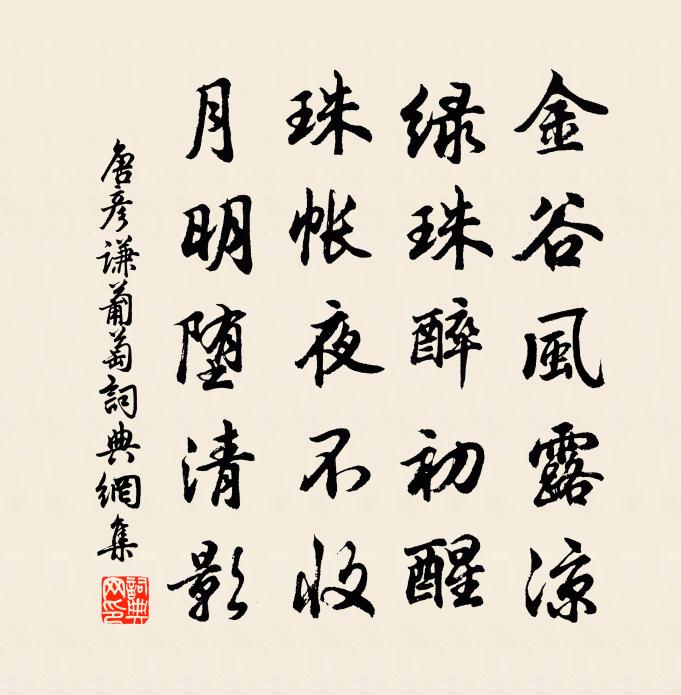 金谷風露涼
绿珠醉初醒
珠帐夜不收
月明堕清影
唐彦謙葡萄詞典網集
詞典網印